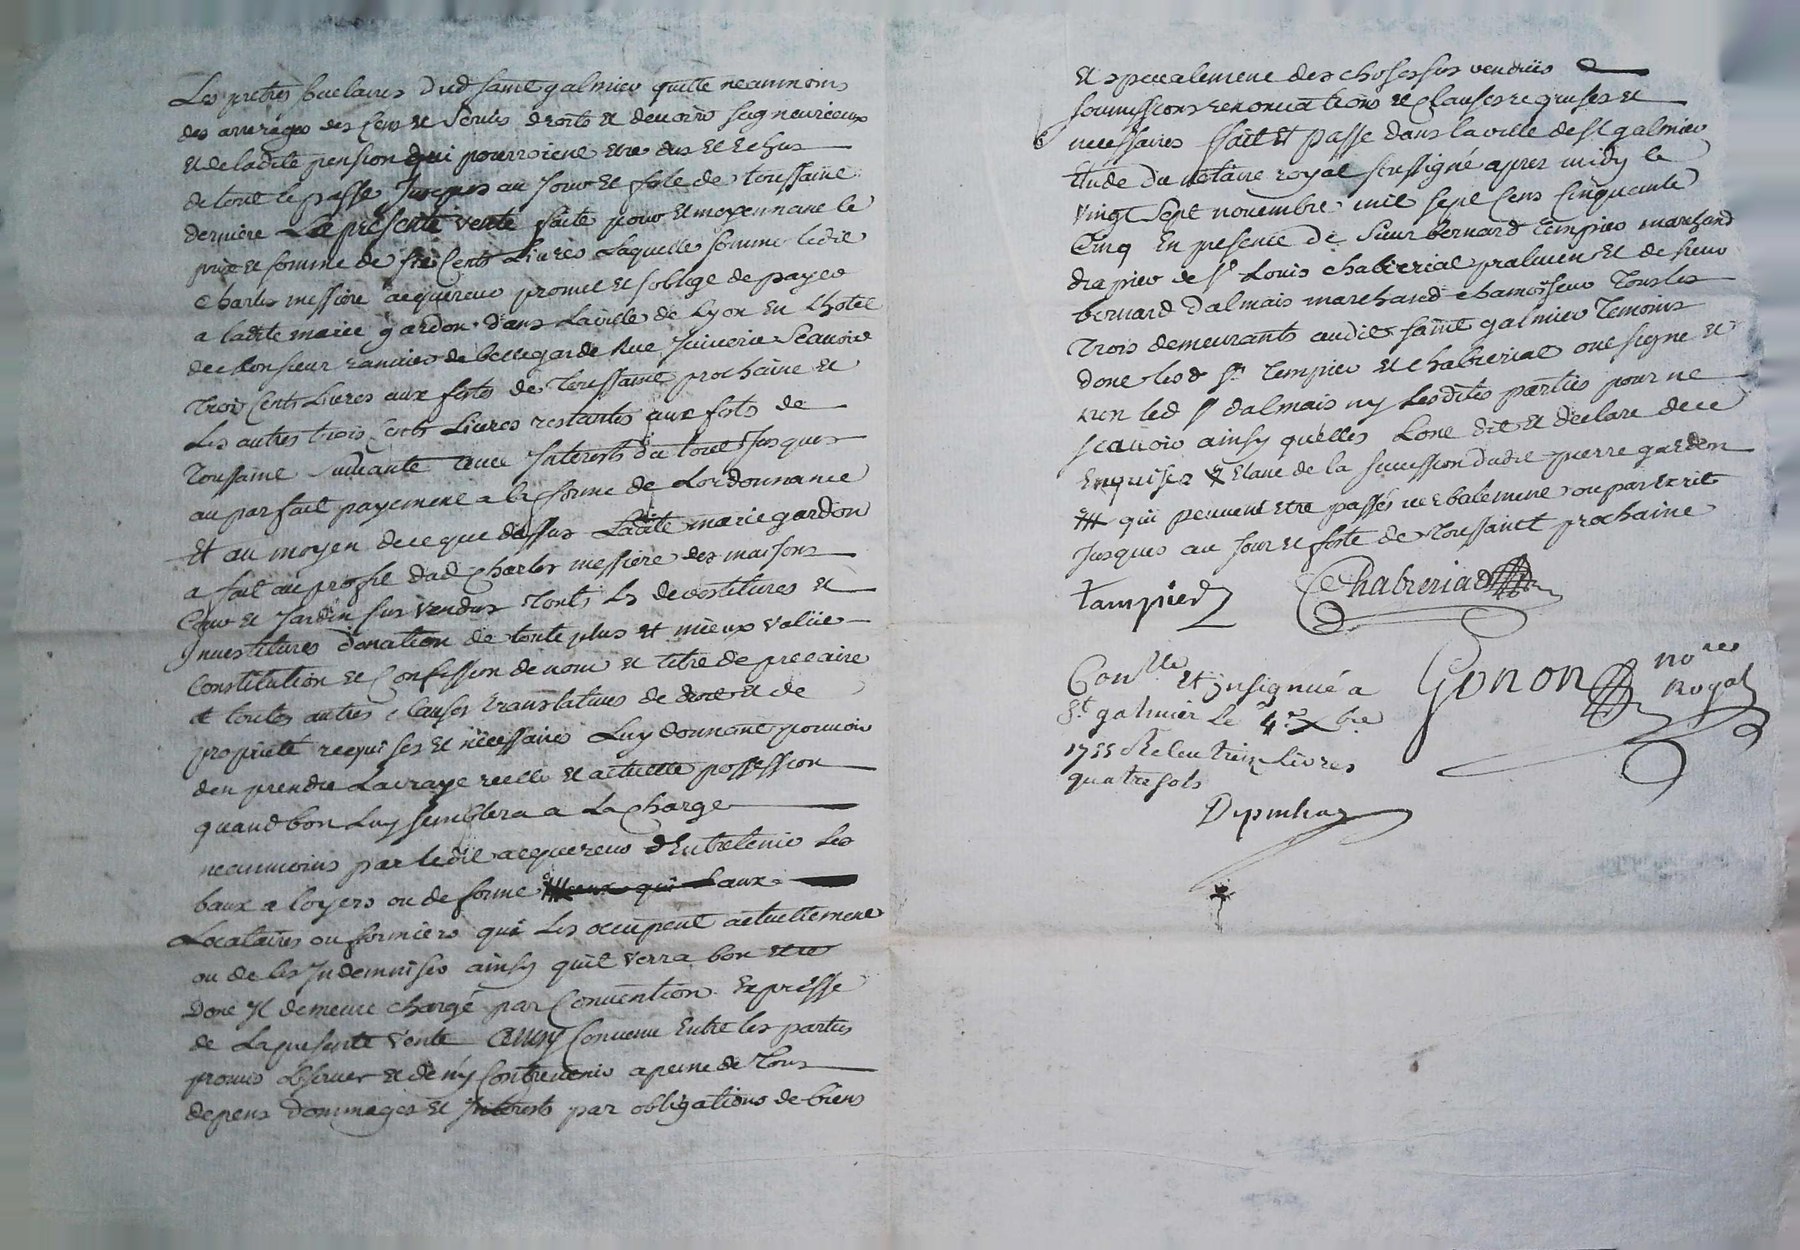 Les pretres Suclaires dud saint galmier quitte neanmoins
des arrerages des Cens et Servis droits et devoirs seigneuriaux
et de ladite pension qui pourroient etre dus et echus
de tout le passé Jusques au Jour et fete de toussaint
derniere La presente vente faite pour et moyennant le
prix et somme de six Cents Livres Laquelle somme ledit
Charles messiere acquereur promet et soblige de payer
a ladite marie gardon dans La ville de Lyon en Lhotel
de Monsieur ranvier de bellegarde Rue Juiverie Scavoir
Trois Cents Livres aux fetes de Toussaint prochaine et
Les autres trois Cents Livres restantes aux fetes de
Toussaint Suivante avec Interests du tout Jusques
au parfait payement a la forme de Lordonnance
Et au moyen de ce que dessus Ladite marie gardon
a fait au profit dud Charles messiere des maisons
Cour et Jardin sus vendus Touts Les devestitures et
Investitures donation de toute plus et mieux value
Constitution et Confession de nom et titre de precaire
et toutes autres Clauses translatives de droit et de
propriété requises et necessaires Luy donnant pouvoir
den prendre La vraye reelle et actuelle possession
quand bon Luy semblera a La Charge
neanmoins par ledit acquereur dEntretenir Les
baux a loyers ou de ferme aux qui Laux
Locataires ou fermiers qui Les occupent actuellement
ou de les Indemniser ainsy quil verra bon etre
Dont Il demeure chargé par Convention Expresse
de La presente vente ainsy Convenu Entre les parties
promis observer et de ny Contrevenir a peine de Tous
depens dommages et Interests par obligations de biens
Et specalement des choses sus vendues
soumissions renonciations et Clauses requises et
necessaires fait et passé dans la ville de st galmier
Etude du notaire royal soussigné apres midy le
vingt Sept novembre mil sept Cens Cinquante
Cinq En presence de Sieur bernard tempier marchand
drapier de sr Louis Chabrerial praticien et de sieur
bernard dalmais marchand chamoiseur Tous les
Trois demeurants audit saint galmier Temoins
dont lesd srs Tempier et chabrerial ont signé et
non led sr dalmais ny Lesdites parties pour ne
scavoir ainsy quelles Lont dit et declaré de ce
Enquises Etant de la succession dudit pierre gardon
qui peuvent etre passés verbalement ou par Ecrit
Jusques au Jour et fete de Toussaint prochaine
Tampier Chabrerial
Conlle et insignué a
St galmier Le 4e Xbre
1755 Receu treize Livres
quatre sols
Gonon nore
Royal